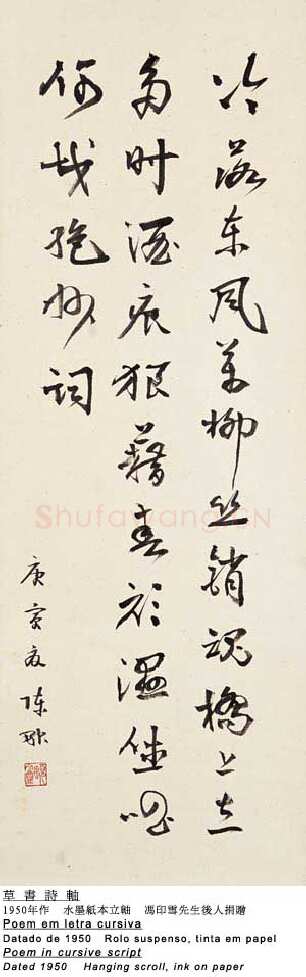 冷落東風萬柳絲銷魂橋上立
多時酒痕狼藉春衫濕唱
何戡絕妙詞
庚寅夏 陳融
ShufaWang.CN
草書詩軸
1950年作 水墨紙本立軸 馮印雪先生後人捐贈
Poem em letra cursiva
Datado de 1950 Rolo suspenso, tinta em papel
Poem in cursive script
Dated 1950 Hanging scroll, ink on paper